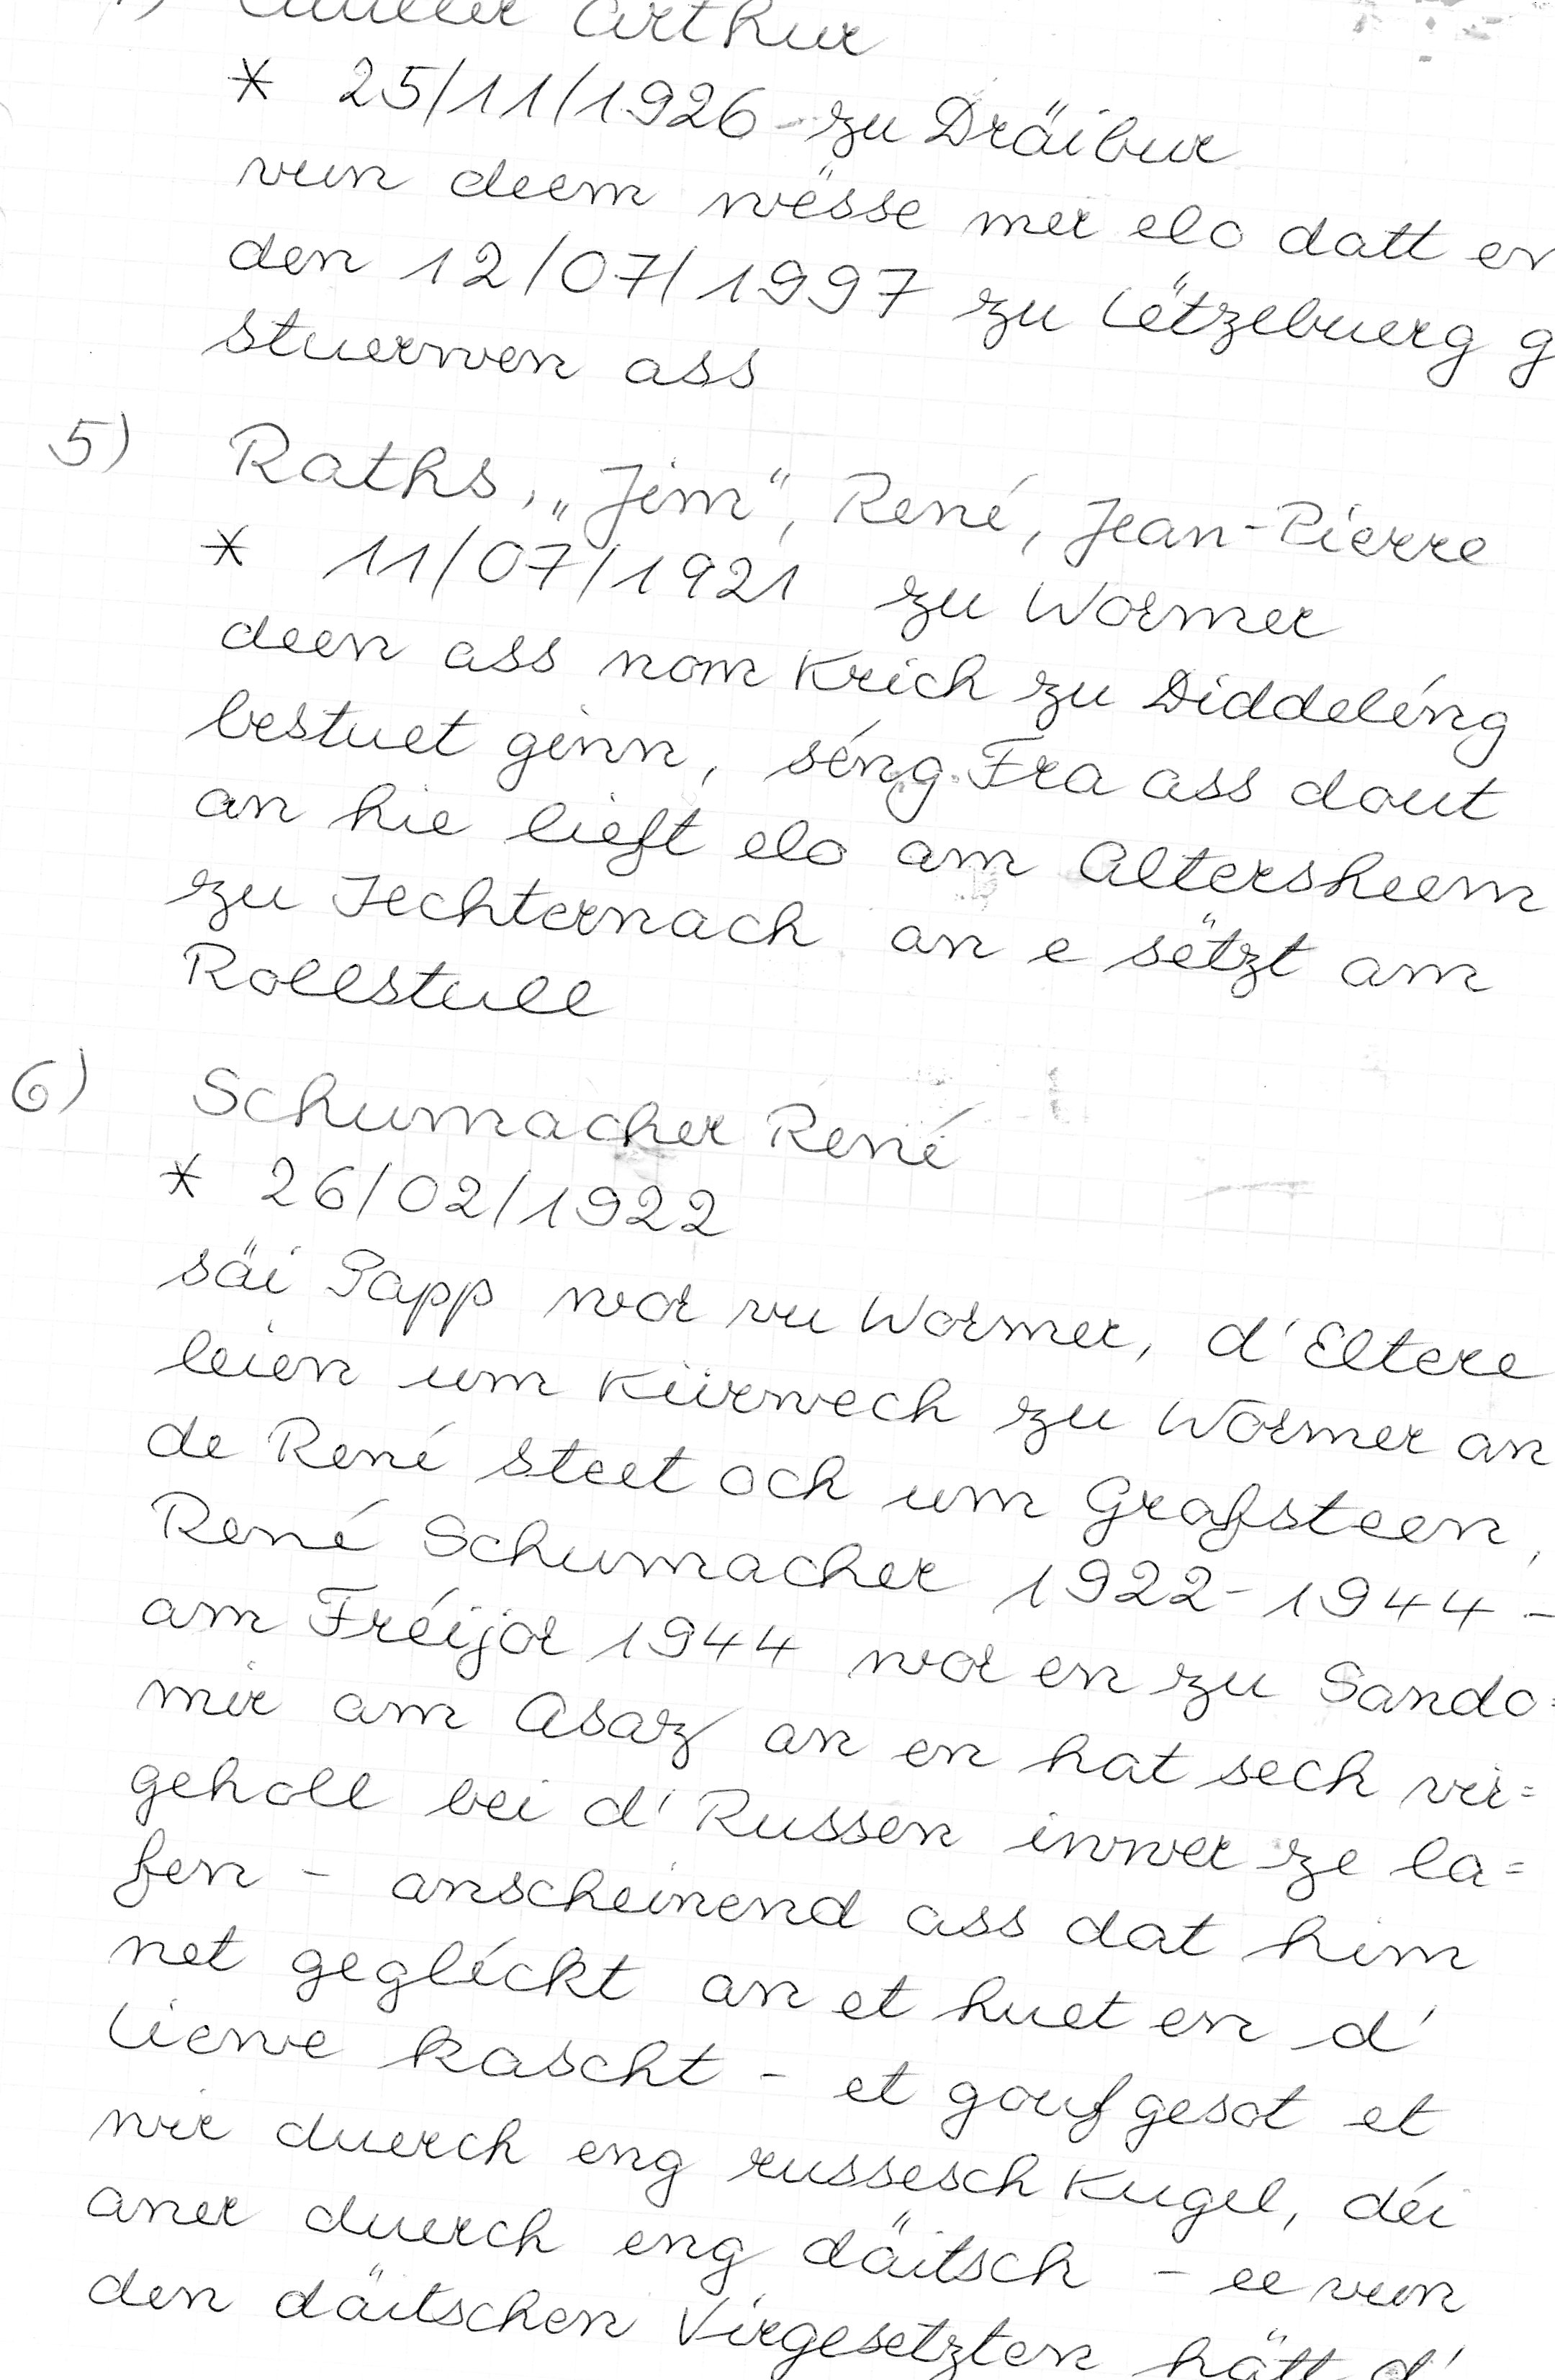 Arthur
* 25/11/1926 - zu Dräibur
vun deem wësse mer elo datt en
den 12/07/1997 zu Lëtzebuerg g
stuerwen ass
5) Raths, „Jim“, René, Jean-Pierre
* 11/07/1921 zu Wormer
deen ass nom Krich zu Diddeléng
bestuet ginn, séng Fra ass dout
an hie lieft elo am Altersheem
zu Iechternach an e sëtzt am
Rollstull
6) Schumacher René
* 26/02/1922
säi Papp wor vu Wormer, d'Eltere
leien um Kiirwech zu Wormer an
de René steet och um Grafsteen,
René Schumacher 1922-1944 -
am Fréijor 1944 wor en zu Sando=
mir am Asaz an en hat sech vir=
geholl bei d'Russen iwwer ze la=
fen - anscheinend ass dat him
net gegléckt an et huet en d'
Liewe kascht - et gouf gesot et
wir duerch eng russesch Kugel, déi
aner duerch eng däitsch - ee vun
den däitschen Virgesetzten hätt d'